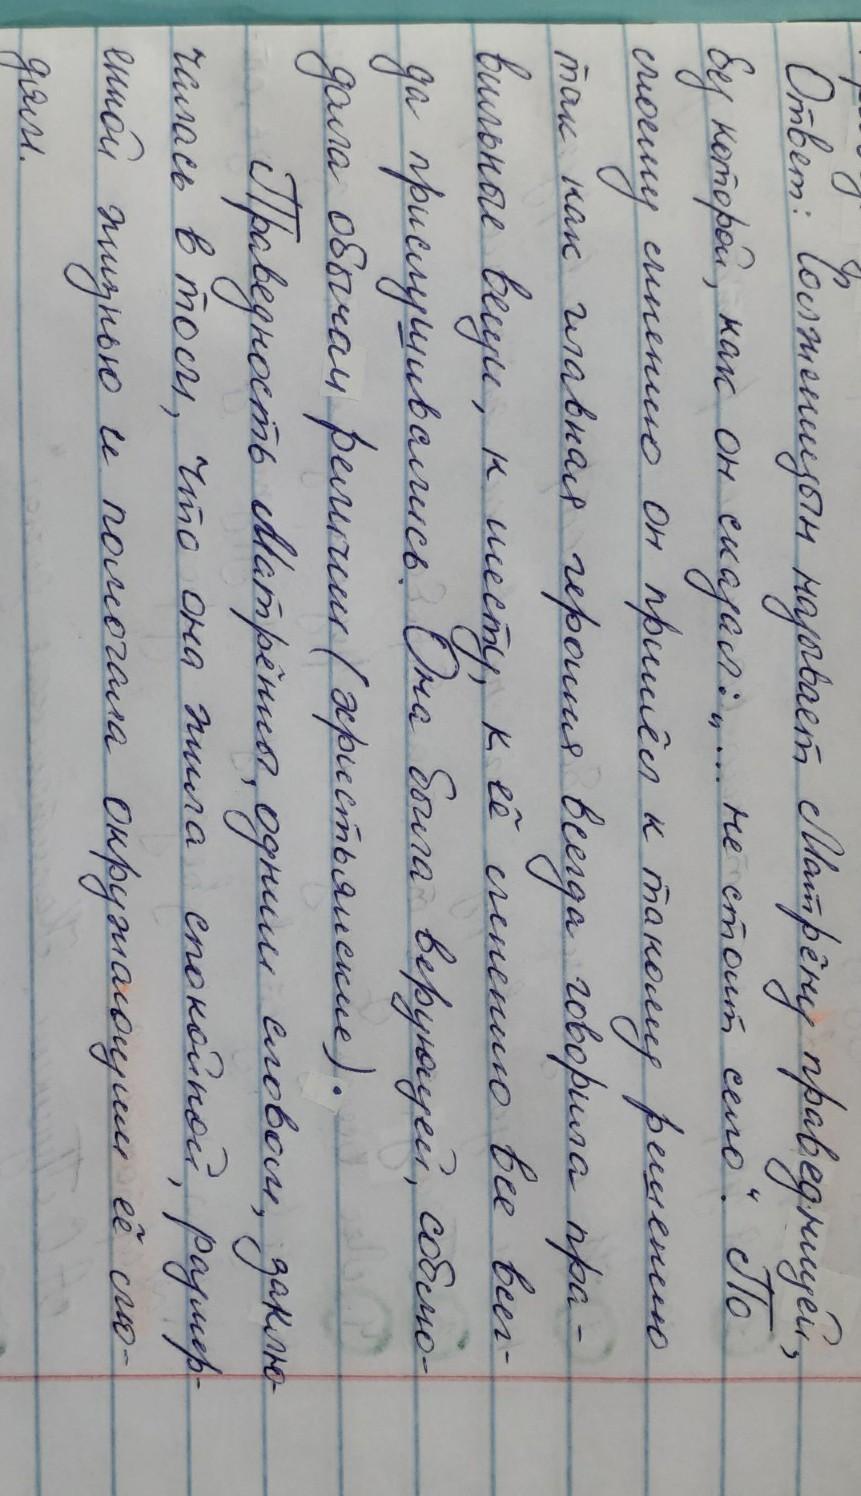 Ответ: Солженицын называет Матрёну праведницей,
без которой, как он сказал: „... не стоит село“. По
моему мнению он пришёл к такому решению
так как главная героиня всегда говорила пра-
вильные вещи, к месту, к её мнению все всег-
да прислушивались. Она была верующей, соблю-
дала обычаи религии (христьянские).
Праведность Матрёны, одним словом, заклю-
чалась в том, что она жила спокойной, размер-
енной жизнью и помогала окружающим её лю-
дям.